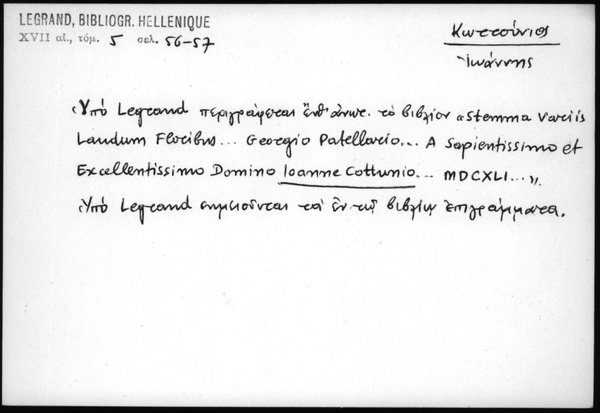 LEGRAND, BIBLIOGR. HELLENIQUE
XVII αἰ., τόμ. 5 σελ. 56-57
Κωττούνιος
Ἰωάννης
Ὑπὸ Legrand περιγράφεται ἐνθ' ἀνωτ. τὸ βιβλίον «Stemma Variis
Laudum Floribus... Georgio Patellario... A Sapientissimo et
Excellentissimo Domino Ioanne Cottunio... MDCXLI...».
Ὑπὸ Legrand σημειοῦνται τὰ ἐν τῷ βιβλίῳ ἐπιγράμματα.